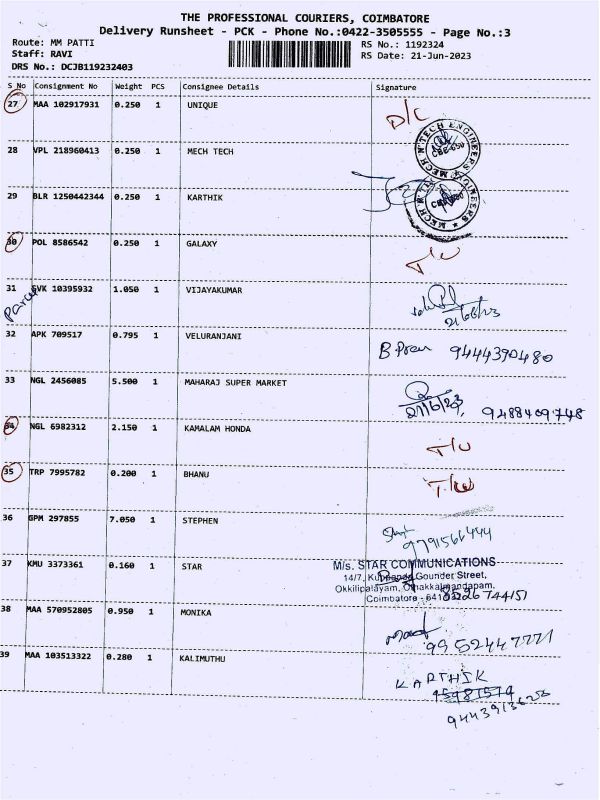 THE PROFESSIONAL COURIERS, COIMBATORE
Delivery Runsheet - PCK - Phone No.:0422-3505555 - Page No.:3
Route: MM PATTI RS No.: 1192324
Staff: RAVI RS Date: 21-Jun-2023
DRS No.: DCJB119232403
S No Consignment No Weight PCS Consignee Details Signature
27 MAA 102917931 0.250 1 UNIQUE D/C
28 VPL 218960413 0.250 1 MECH TECH
29 BLR 1250442344 0.250 1 KARTHIK
30 POL 8586542 0.250 1 GALAXY
31 SVK 10395932 1.050 1 VIJAYAKUMAR
21/6/23
32 APK 709517 0.795 1 VELURANJANI
9444390480
33 NGL 2456085 5.500 1 MAHARAJ SUPER MARKET
21/6/23, 9488409748
34 NGL 6982312 2.150 1 KAMALAM HONDA
35 TRP 7995782 0.200 1 BHANU
36 GPM 297855 7.050 1 STEPHEN
9791566444
37 KMU 3373361 0.160 1 STAR
M/s. STAR COMMUNICATIONS
14/7, Gounder Street,
Okkilipalayam, Othakkalmandapam,
Coimbatore - 641
38 MAA 570952805 0.950 1 MONIKA
9952447771
39 MAA 103513322 0.280 1 KALIMUTHU
KARTHIK